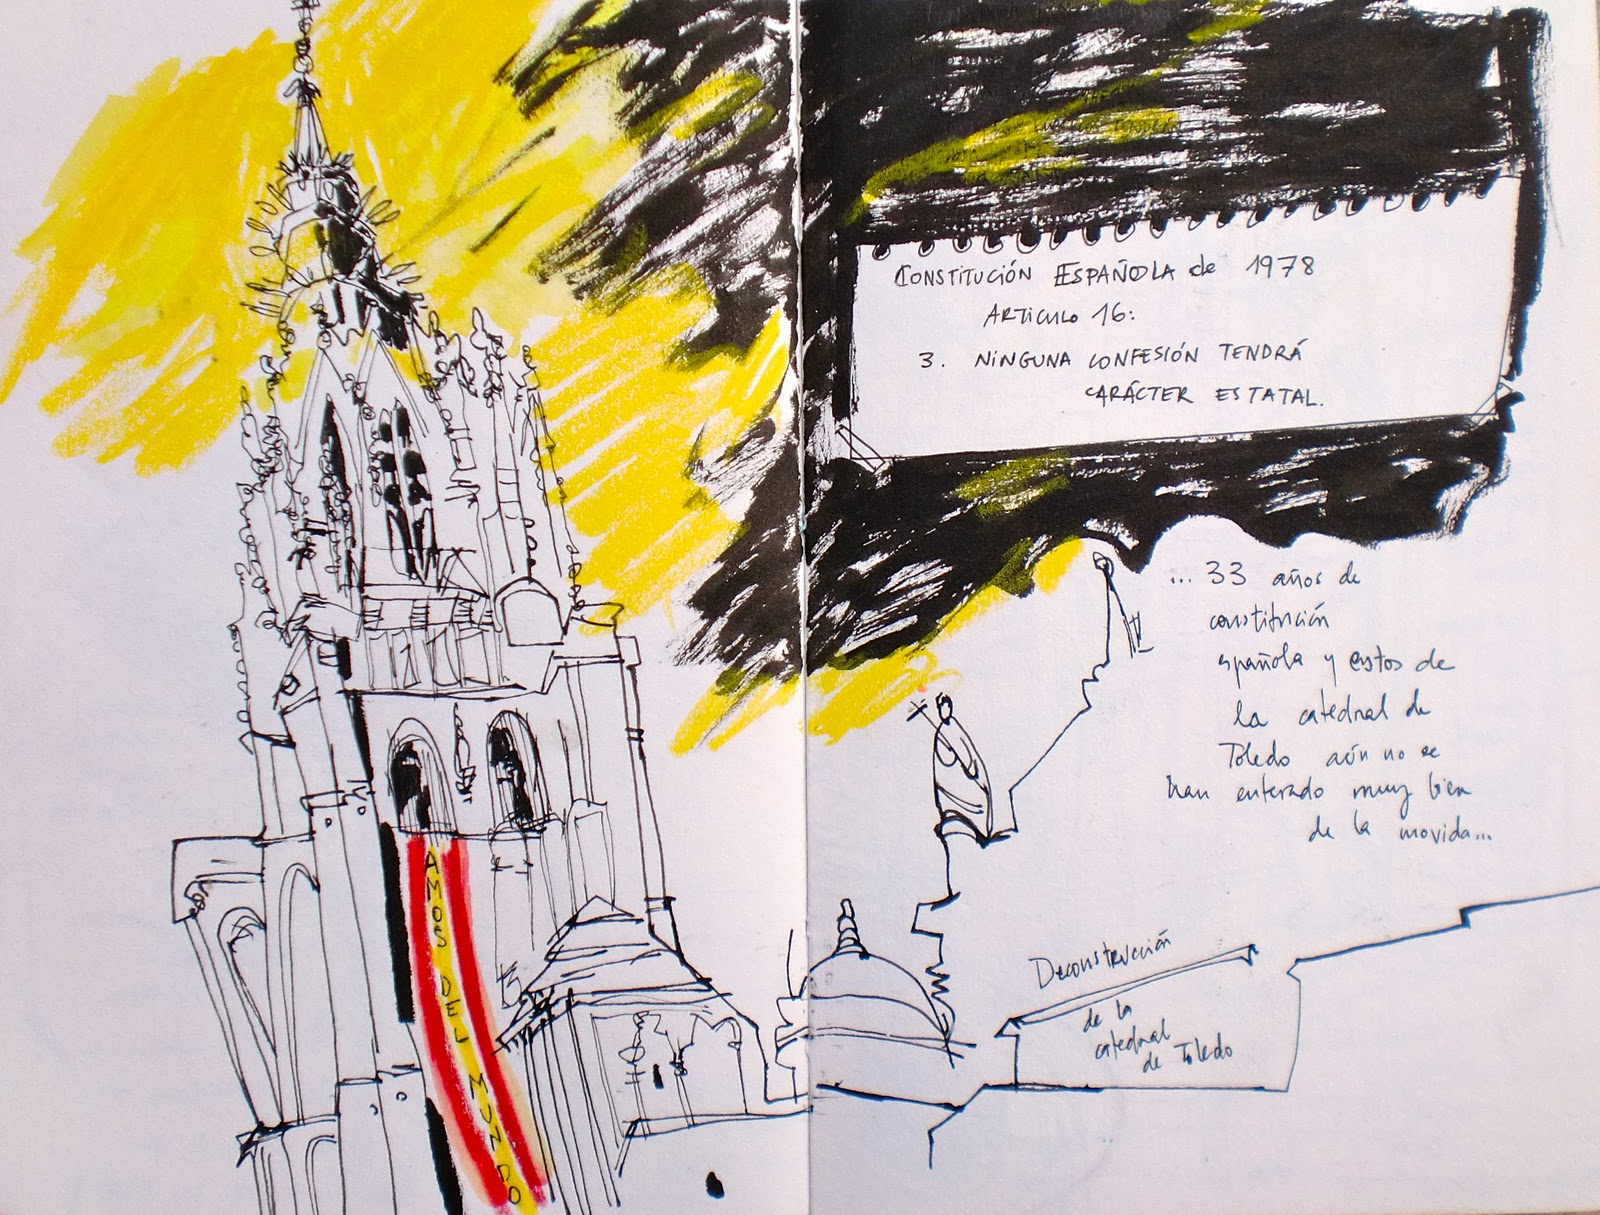 AMOS DEL MUNDO
CONSTITUCIÓN ESPAÑOLA de 1978
ARTICULO 16:
3. NINGUNA CONFESIÓN TENDRÁ
CARÁCTER ESTATAL.
... 33 años de
constitución
española y estos de
la catedral de
Toledo aún no se
han enterado muy bien
de la movida...
Deconstrucción
de la
catedral
de Toledo